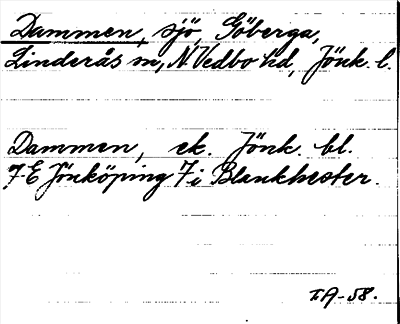 Dammen, sjö, Göberga,
Linderås sn, N. Vedbo hd, Jönk. l.
Dammen, ek. Jönk. bl.
7E Jönköping 7i Blankhester.
IA-58.